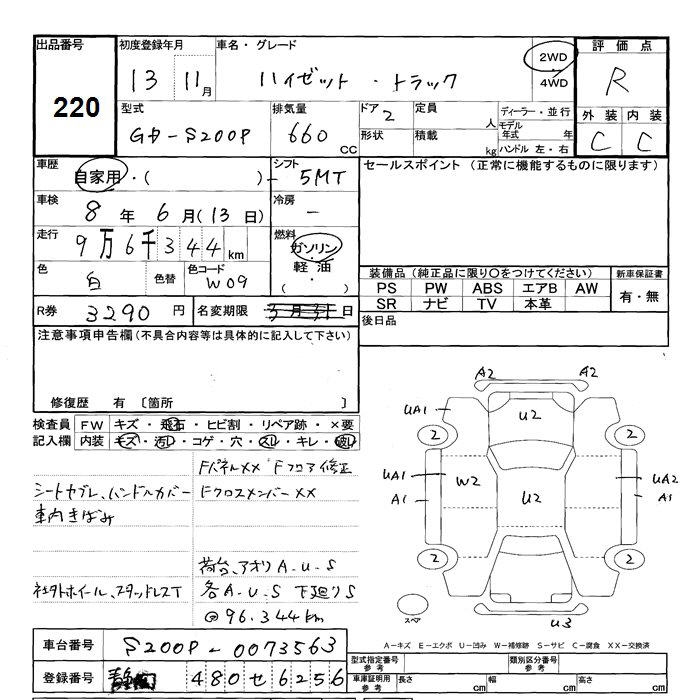 出品番号
220
初度登録年月
13 11月
車名・グレード
ハイゼット・トラック
2WD
4WD
評価点
R
外装 内装
C C
型式
GD-S200P
排気量
660 CC
ドア 2
形状
定員 人
積載 kg
ディーラー・並行
モデル年式 年
ハンドル 左・右
車歴
自家用・( )
シフト
5MT
セールスポイント (正常に機能するものに限ります)
車検
8年 6月(13日)
冷房
-
走行
9万6千344km
燃料
ガソリン
軽油
( ・ )
色
白
色替
色コード
W09
装備品(純正品に限り○をつけてください)
新車保証書
PS PW ABS エアB AW
SR ナビ TV 本革
有・無
R券
3290円
名変期限
3月31日
後日品
注意事項申告欄(不具合内容等は具体的に記入して下さい)
修復歴 有 〔箇所 〕
検査員記入欄
FW キズ・飛石・ヒビ割・リペア跡・×要
内装 キズ・汚レ・コゲ・穴・スレ・キレ・破レ
FパネルXX Fフロア修正
シートヤブレ、ハンドルカバー
FクロスメンバーXX
車内きばみ
荷台、アオリA.U.S
社外ホイール、スタッドレスT
各A.U.S 下廻りS
@96.344km
A2 A2
UA1 U2
2 2
UA1 W2 U2 UA2
A1 A1
2 2
スペア
U3
A-キズ E-エクボ U-凹み W-補修跡 S-サビ C-腐食 XX-交換済
車台番号
S200P-0073563
登録番号
静岡 480せ6256
型式指定番号 参考
類別区分番号 参考
車庫証明用 参考
長さ cm
幅 cm
高さ cm